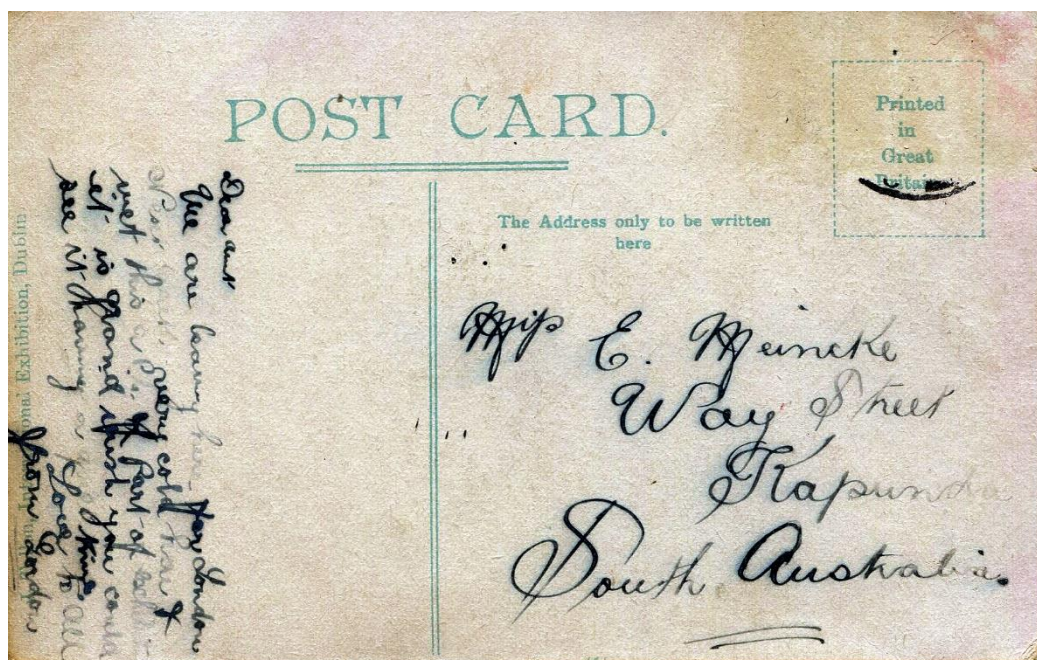 POST CARD.
Printed
in
Great
Britain
The Address only to be written
here
Dear aunt
We are leaving here for London
very cold here &
wet this is a Part of
it is grand wish you could
see it having a time
Love to all
from E
London
onal Exhibition, Dublin
Miss E. Meincke
Way Street
Kapunda
South Australia.